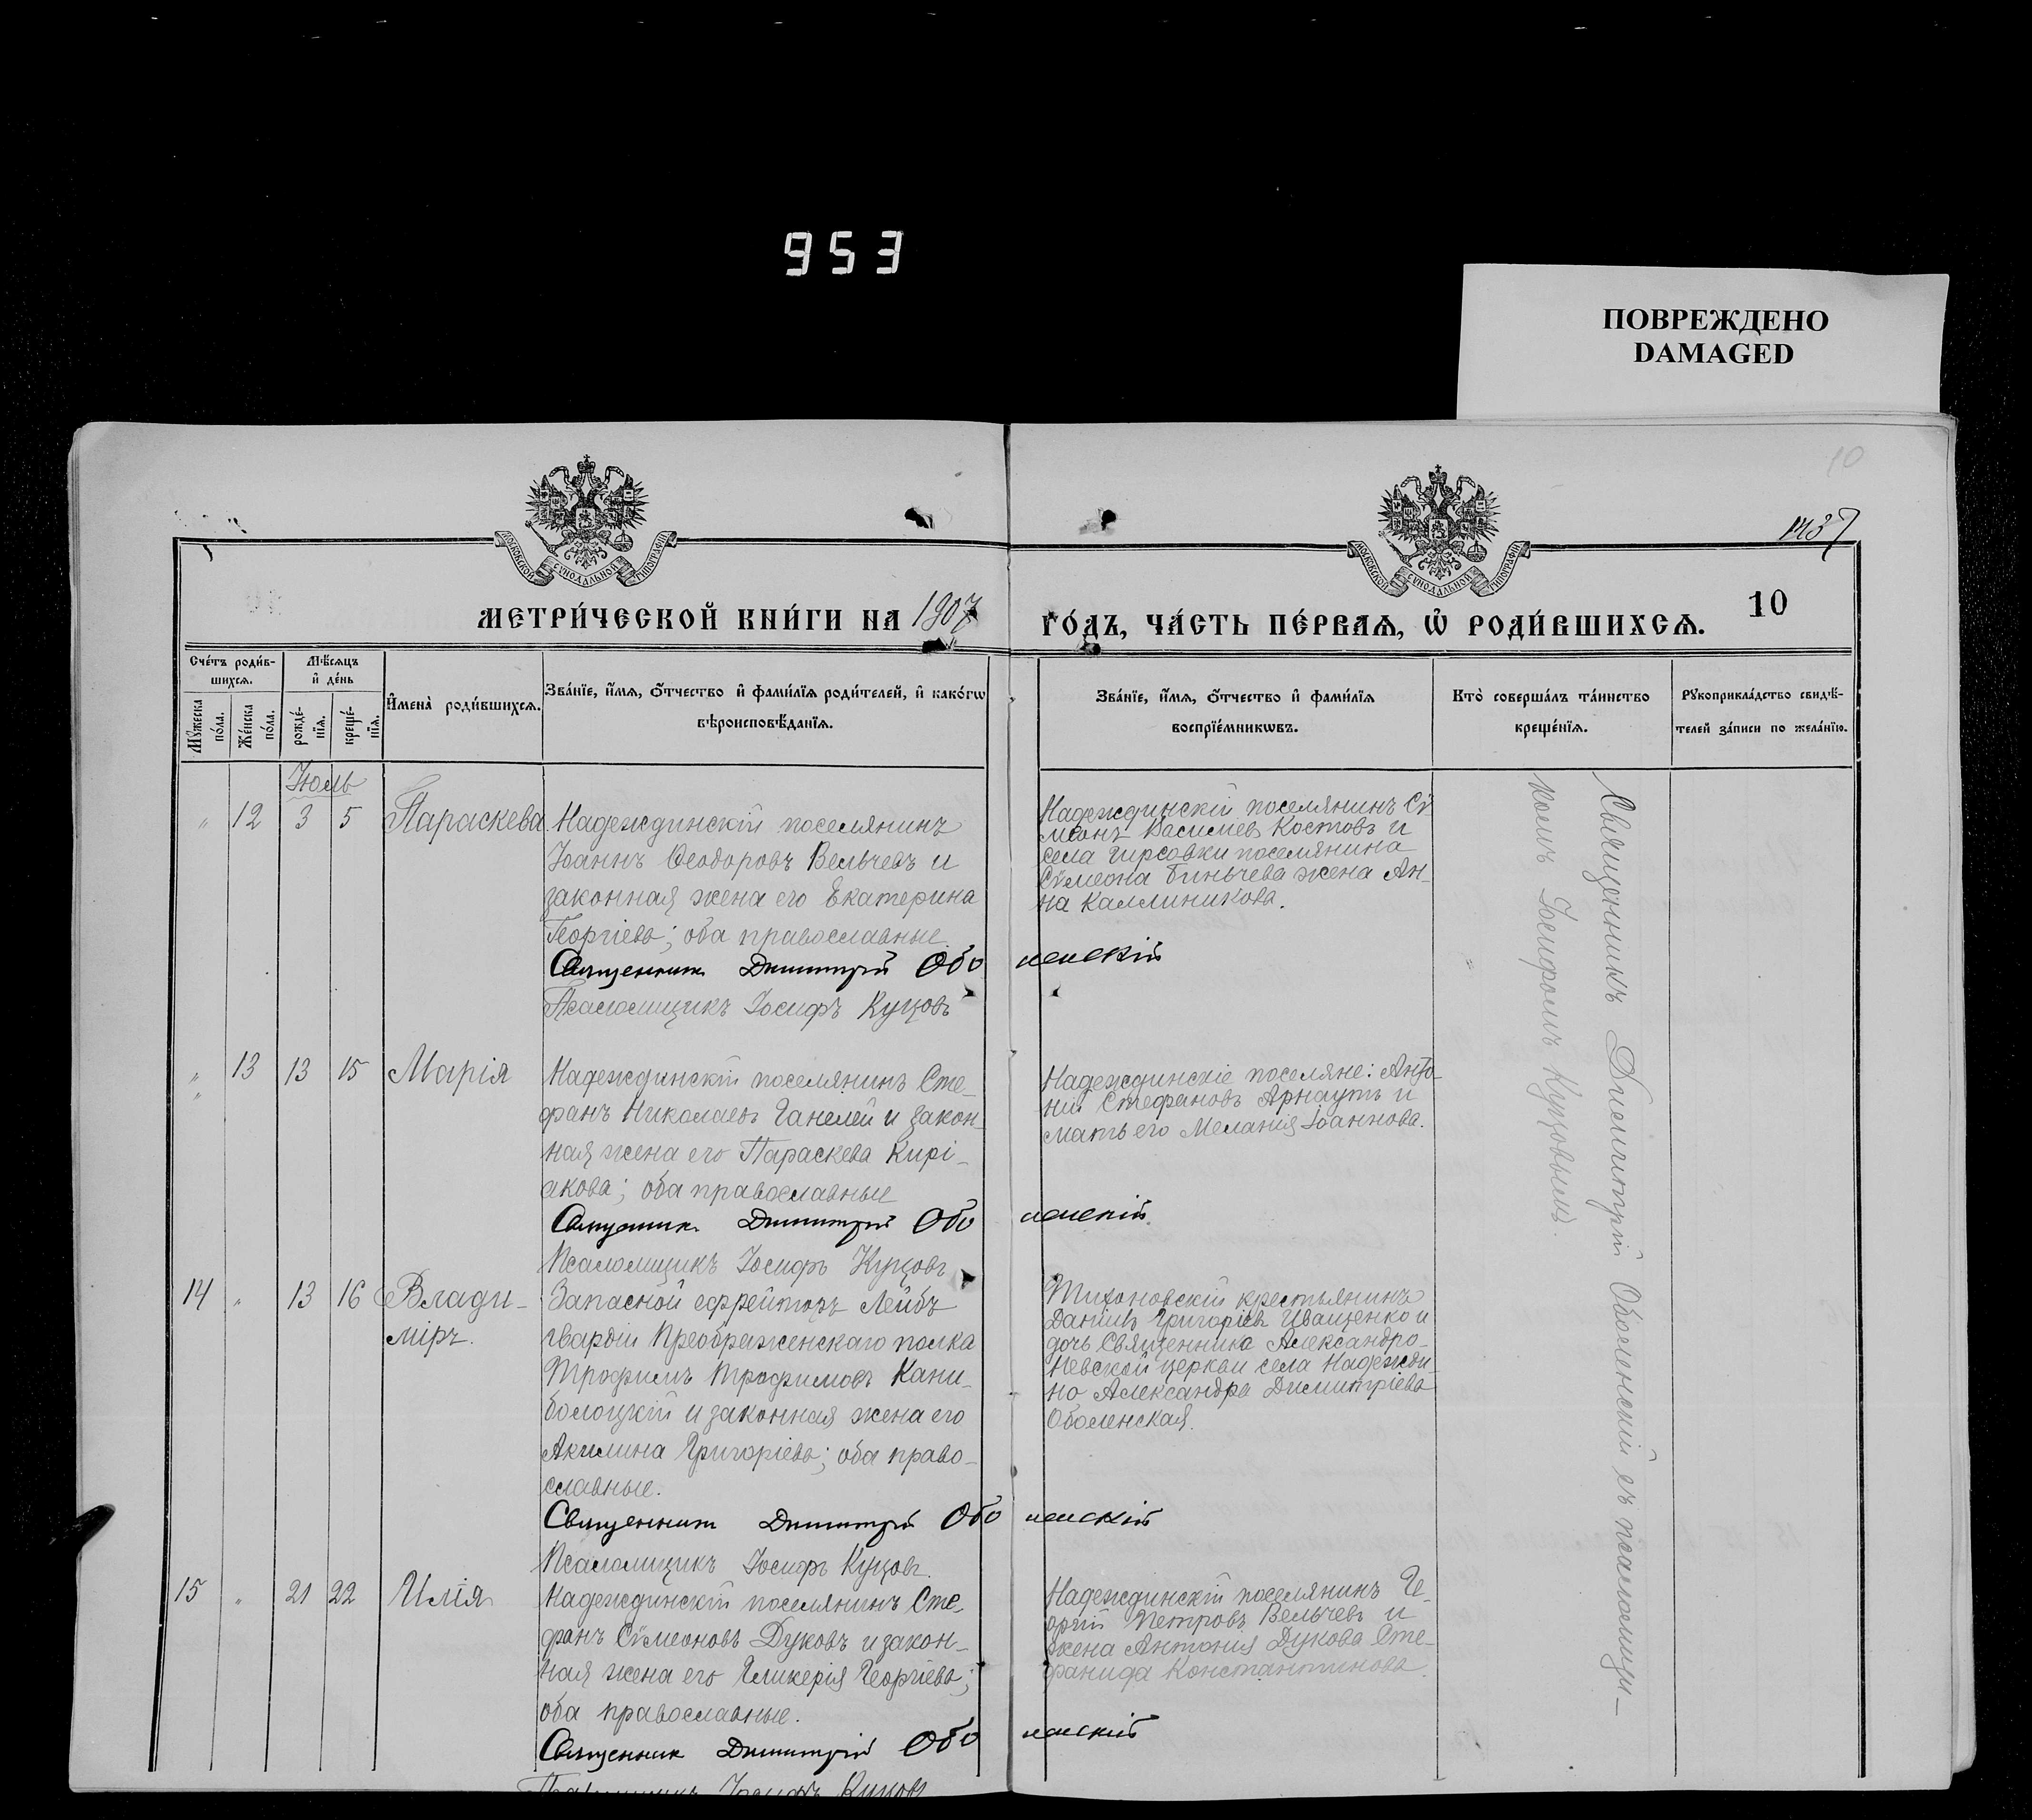 953
ПОВРЕЖДЕНО
DAMAGED
10
1437
МОСКОВСКОЙ СѴНОДАЛЬНОЙ ТИПОГРАФІИ
МОСКОВСКОЙ СѴНОДАЛЬНОЙ ТИПОГРАФІИ
МЕТРИ́ЧЕСКОЙ КНИ́ГИ НА 1907
ГО́ДЪ, ЧА́СТЬ ПЕ́РВАѦ, Ѽ РОДИ́ВШИХСѦ.
10
Сче́тъ роди́в-
шихсѧ.
Мѣ́сѧцъ
и҆ де́нь
Мꙋ́жеска
по́ла.
Же́нска
по́ла.
рожде́-
нїѧ.
креще́-
нїѧ.
И҆мена̀ роди́вшихсѧ.
Зва́нїе, и҆́мѧ, ѻ҆́тчество и҆ фами́лїѧ роди́телей, и҆ како́гѡ
вѣроисповѣ́данїѧ.
Зва́нїе, и҆́мѧ, ѻ҆́тчество и҆ фами́лїѧ
воспрїе́мникѡвъ.
Кто̀ соверша́лъ та́инство
креще́нїѧ.
Рꙋкоприкла́дство свидѣ́-
телей за́писи по жела́нїю.
Іюль
" 12 3 5 Параскева
Надеждинскій поселянинъ
Іоаннъ Ѳеодоровъ Вельчевъ и
законная жена его Екатерина
Георгіева; оба православные.
Священникъ Димитрій Оболенскій
Псаломщикъ Іосифъ Куцовъ
Надеждинскій поселянинъ Сѵ-
меонъ Василіевъ Костовъ и
села Гирсовки поселянина
Сѵмеона Биньчева жена Ан-
на Каллиникова.
" 13 13 15 Марія
Надеждинскій поселянинъ Сте-
фанъ Николаевъ Ганелей и закон-
ная жена его Параскева Кирі-
акова; оба православные
Священникъ Димитрій Оболенскій
Псаломщикъ Іосифъ Куцовъ
Надеждинскіе поселяне: Анто-
ній Стефановъ Арнаутъ и
мать его Меланія Іоаннова.
14 " 13 16 Влади-
міръ.
Запасной ефрейторъ Лейбъ
гвардіи Преображенскаго полка
Трофимъ Трофимовъ Кани-
болоцкій и законная жена его
Акилина Григоріева; оба право-
славные.
Священникъ Димитрій Оболенскій
Псаломщикъ Іосифъ Куцовъ.
Тихоновскій крестьянинъ
Даніилъ Григоріевъ Иващенко и
дочь Священника Александро-
Невской церкви села Надежди-
но Александра Димитріева
Оболенская.
15 " 21 22 Илія
Надеждинскій поселянинъ Сте-
фанъ Сѵмеоновъ Дуковъ и закон-
ная жена его Гликерія Георгіева;
оба православные.
Священникъ Димитрій Оболенскій
Псаломщикъ Іосифъ Куцовъ
Надеждинскій поселянинъ Ге-
оргій Петровъ Вельчевъ и
жена Антонія Дукова Сте-
фанида Константинова.
Священникъ Димитрій Оболенскій съ псаломщи-
комъ Іосифомъ Куцовымъ.